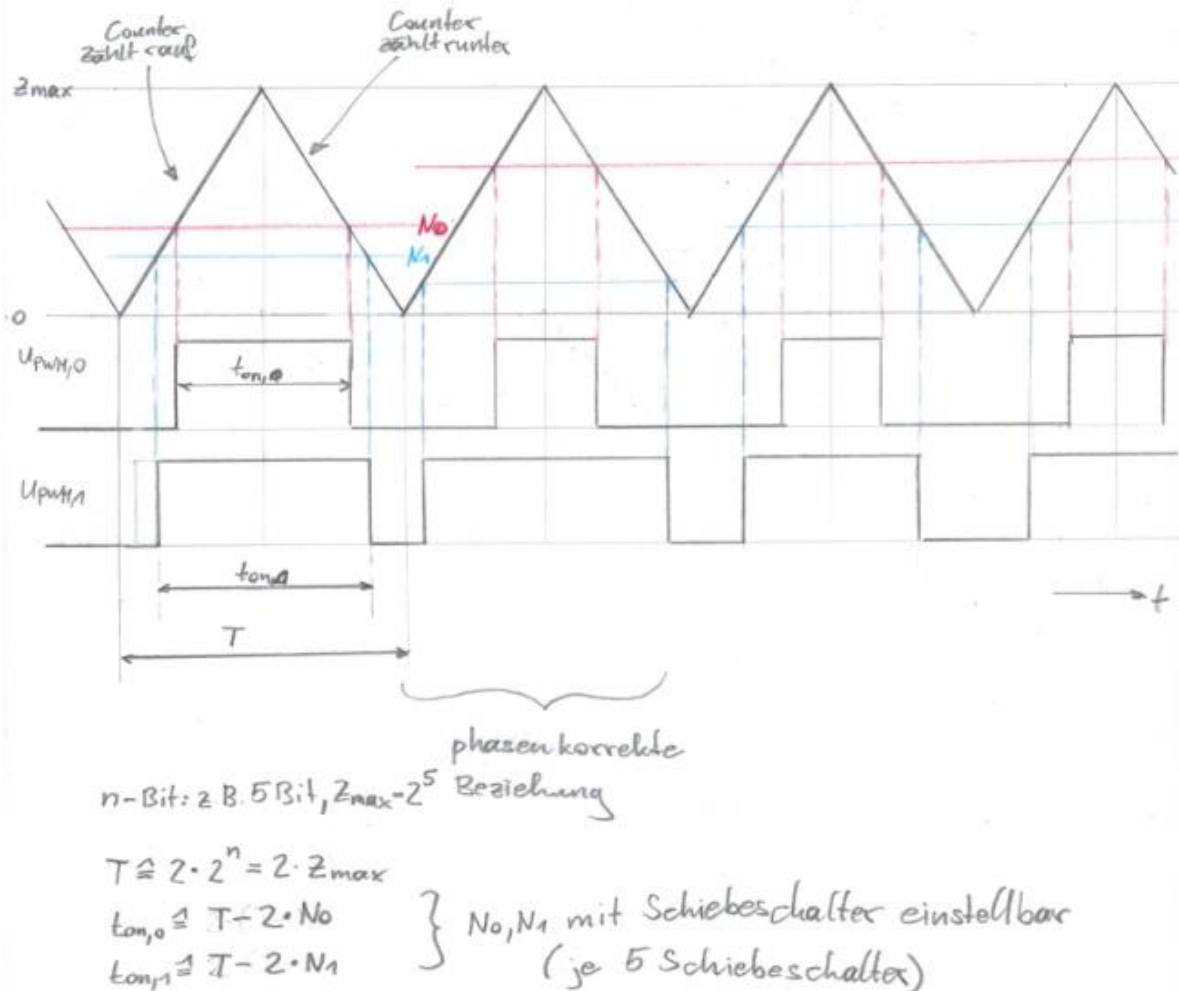 Counter
zählt rauf
Counter
zählt runter
Zmax
N0
N1
0
UPWM,0
ton,0
UPWM,1
ton,1
t
T
phasenkorrekte
Beziehung
n-Bit: z.B. 5 Bit, Zmax=2⁵
T ≙ 2·2ⁿ = 2·Zmax
ton,0 ≙ T-2·N0
ton,1 ≙ T-2·N1
} N0,N1 mit Schiebeschalter einstellbar
(je 5 Schiebeschalter)